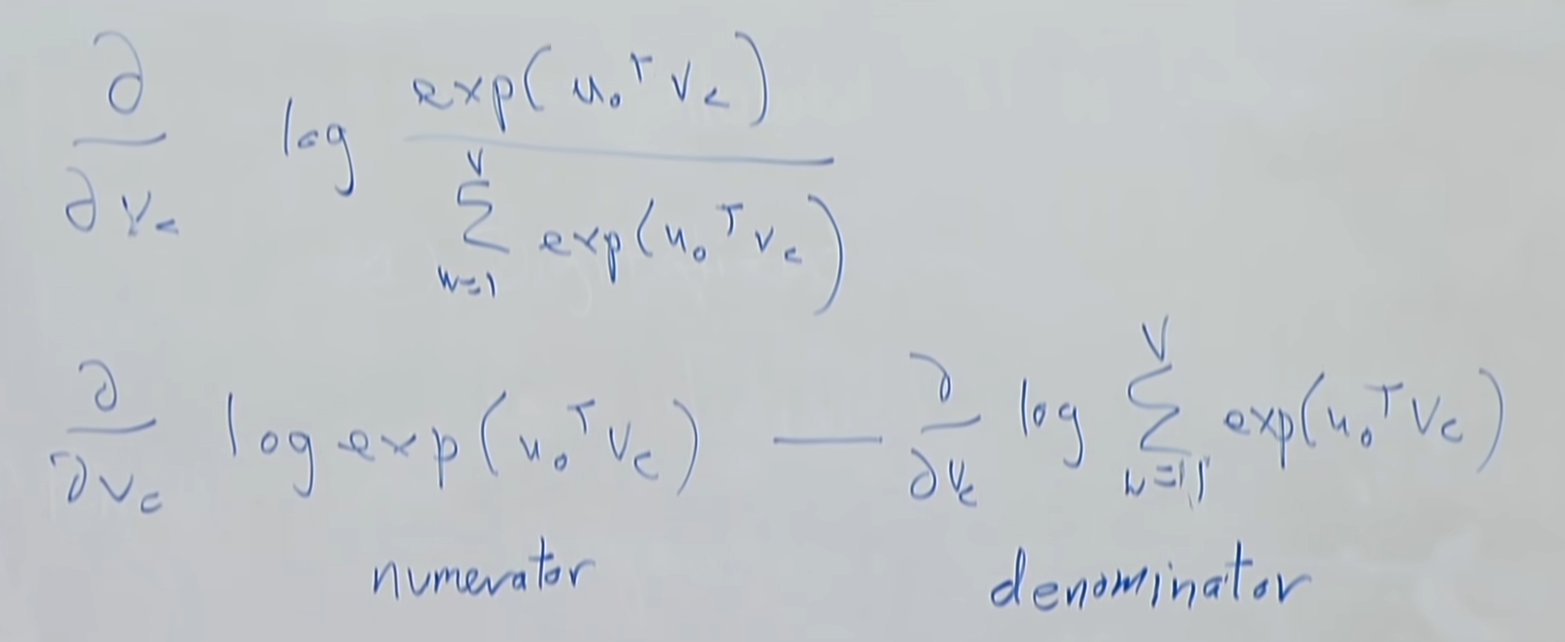 ∂/∂v_c log exp(u_o^T v_c) / ∑_{w=1}^{V} exp(u_o^T v_c)
∂/∂v_c log exp(u_o^T v_c) — ∂/∂v_c log ∑_{w=1}^{V} exp(u_o^T v_c)
numerator denominator